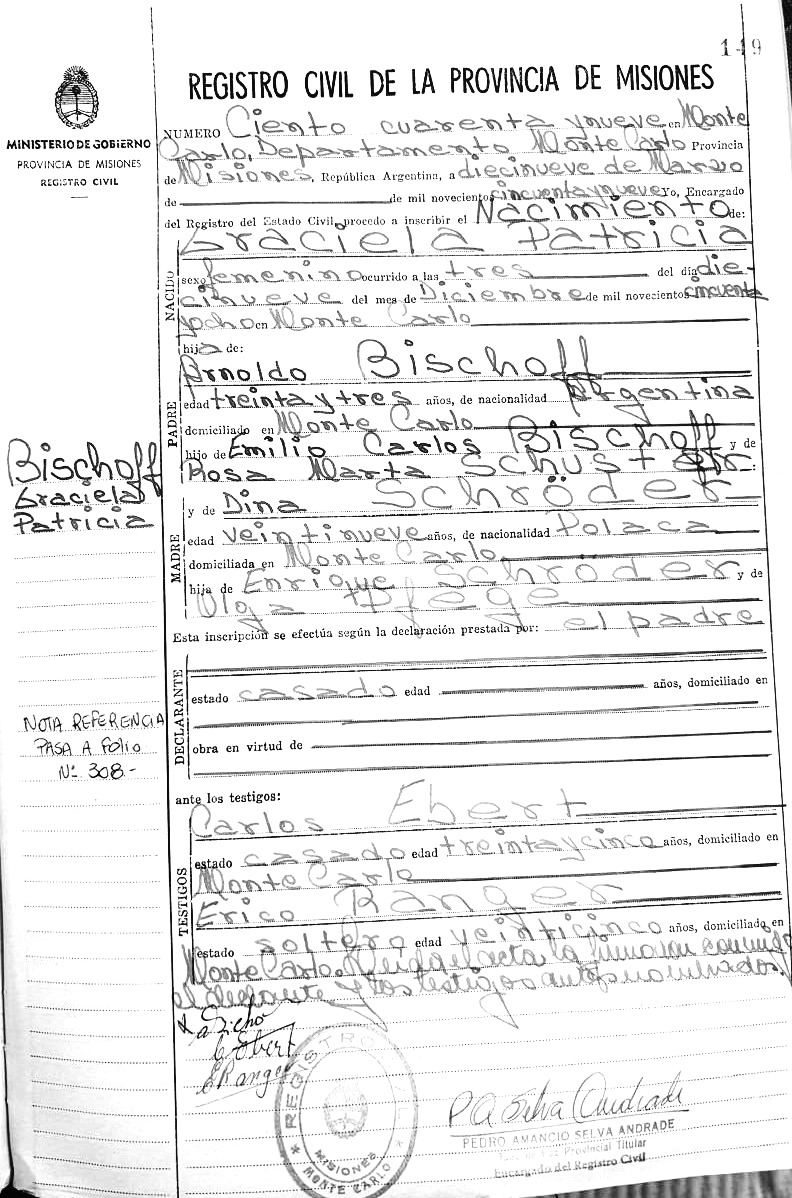 149
REGISTRO CIVIL DE LA PROVINCIA DE MISIONES
MINISTERIO DE GOBIERNO
PROVINCIA DE MISIONES
REGISTRO CIVIL
NUMERO Ciento cuarenta y nueve en Monte
Carlo, Departamento Monte Carlo Provincia
de Misiones, República Argentina, a diecinueve de Marzo
de de mil novecientos cincuenta y nueve yo, Encargado
del Registro del Estado Civil procedo a inscribir el Nacimiento de:
NACIDO
Graciela Patricia
sexo femenino ocurrido a las tres del día die-
cinueve del mes de Diciembre de mil novecientos cincuenta
y ocho en Monte Carlo
hija de:
PADRE
Arnoldo Bischoff
edad treinta y tres años, de nacionalidad Argentina
domiciliado en Monte Carlo
hijo de Emilio Carlos Bischoff y de
Rosa Marta Schuster:
Bischoff
Graciela
Patricia
MADRE
y de Dina Schröder
edad veintinueve años, de nacionalidad Polaca
domiciliada en Monte Carlo
hija de Enrique Schröder y de
Olga
Esta inscripción se efectúa según la declaración prestada por: el padre
DECLARANTE
estado casado edad años, domiciliado en
obra en virtud de
NOTA REFERENCIA
PASA A FOLIO
Nº 308.-
ante los testigos:
TESTIGOS
Carlos Ebert
estado casado edad treinta y cinco años, domiciliado en
Monte Carlo
Erico Ranger
estado soltero edad veinticinco años, domiciliado en
Monte Carlo. Leida el acta la firman conmigo
el declarante y los testigos
C Ebert
E Ranger
REGISTRO CIVIL
MISIONES
MONTE CARLO
P A Silva Andrade
PEDRO AMANCIO SELVA ANDRADE
Provincial Titular
Encargado del Registro Civil